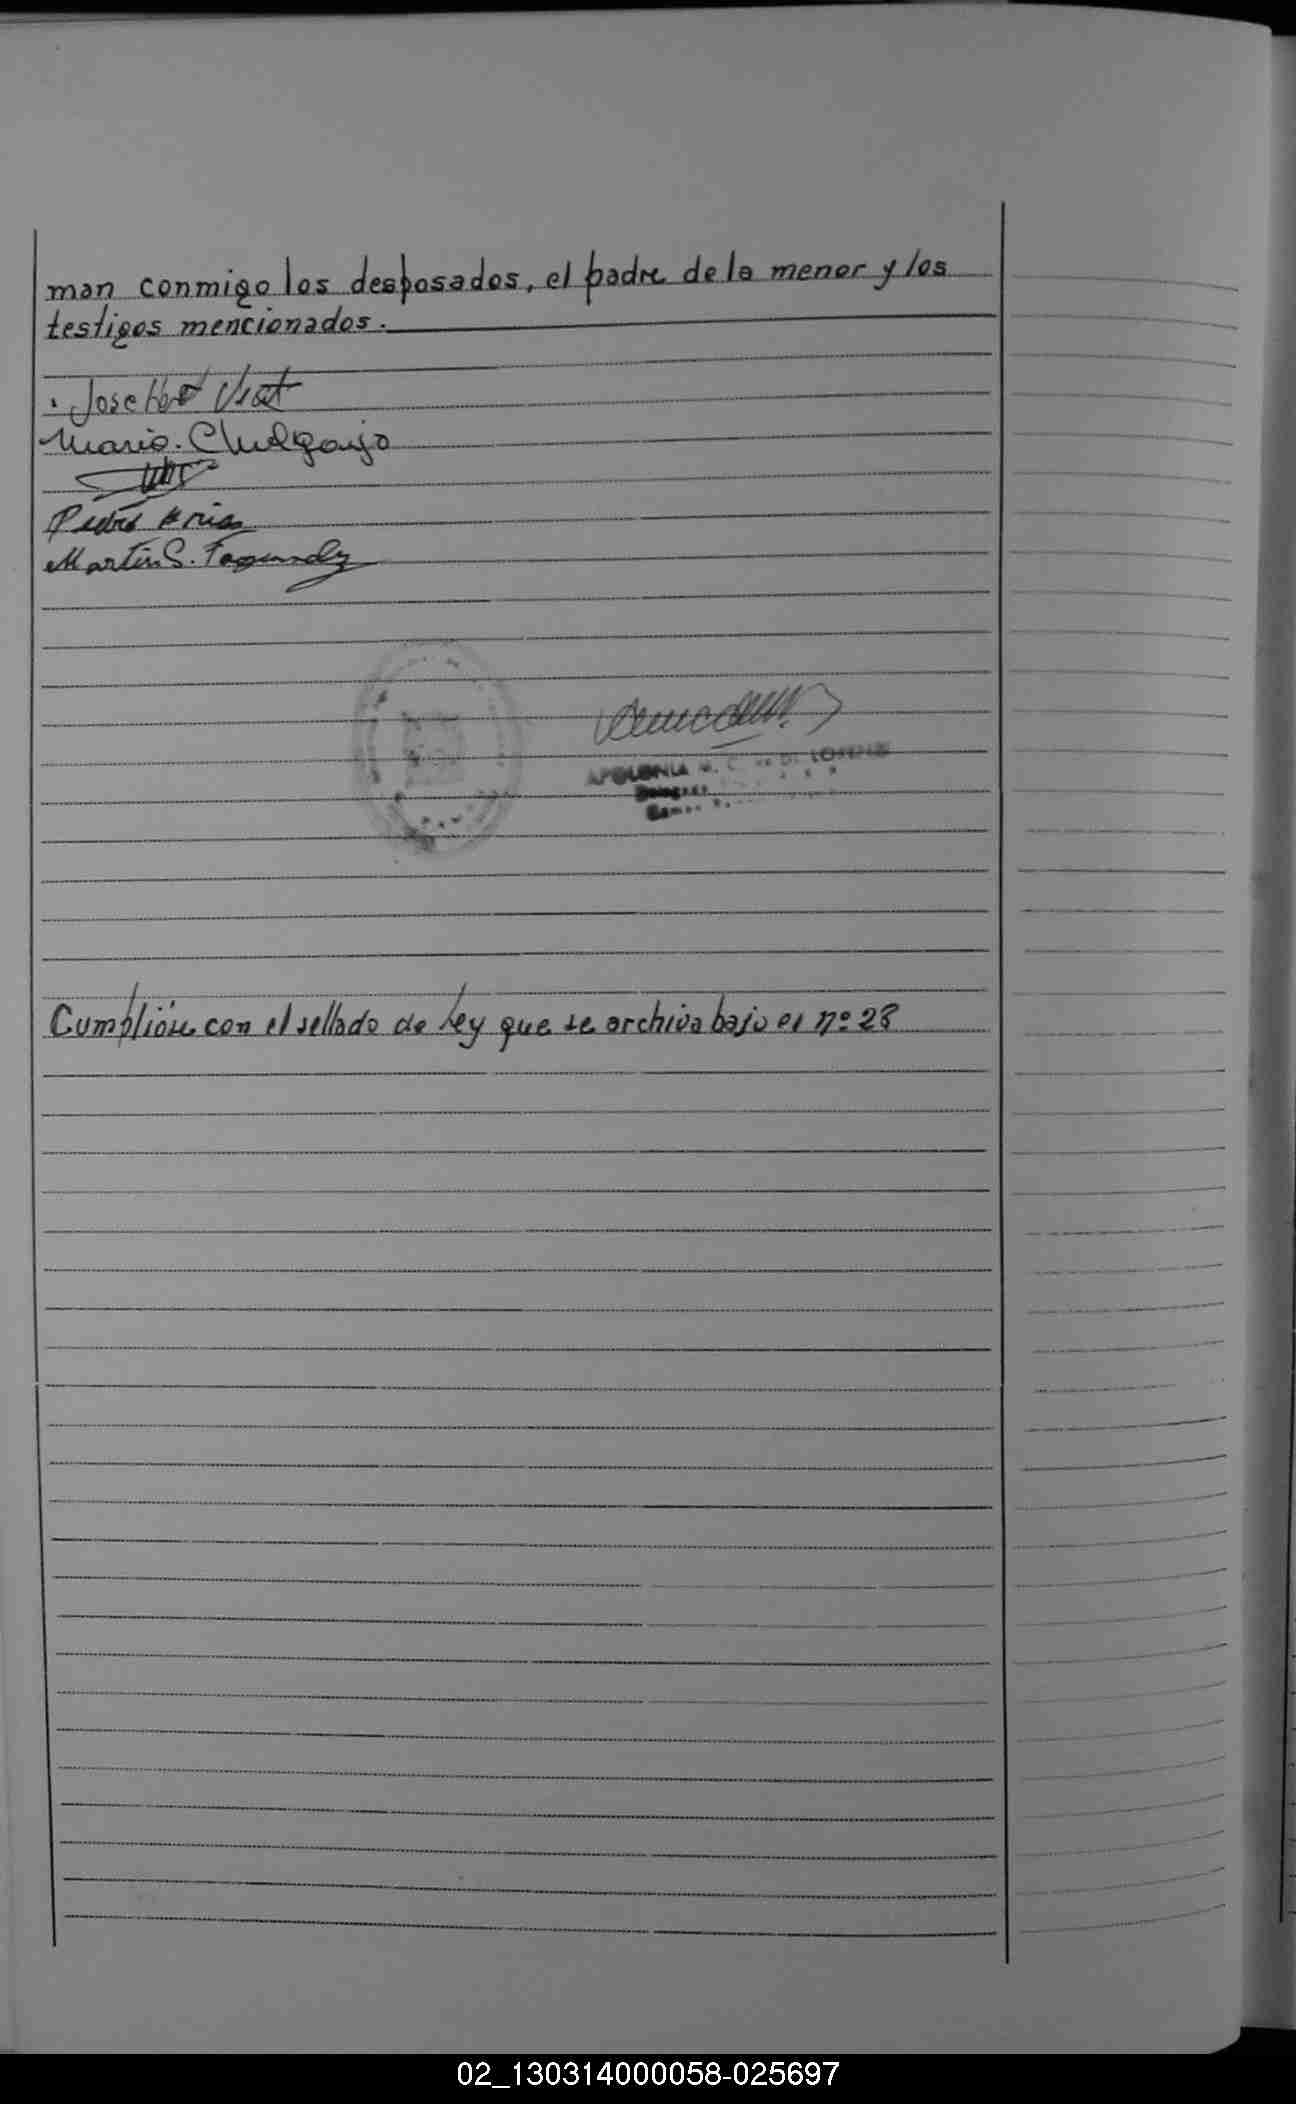 man conmigo los desposados, el padre de la menor y los
testigos mencionados.
Jose
Maria.
Pedro Arias
Martin S.
APOLONIA M. C. DE DI LORENZO
Cumplióse con el sellado de Ley que se archiva bajo el nº 28
02_130314000058-025697